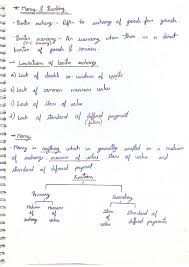 * Money & Banking
- Barter exchange :- Refer to exchange of goods for goods.
- Barter economy :- An economy where there is a direct
barter of goods & services.
* Limitations of barter exchange
a) Lack of double coincidence of wants
b) Lack of common measure value
c) Lack of store of value
d) Lack of standard of deferred payment
(future)
* Money :-
Money is anything which is generally accepted as a medium
of exchange, measure of value, store of value and
standard of deferred payment.
Functions
Primary Secondary
Medium of exchange Measure of value Store of value Standard of deferred payments